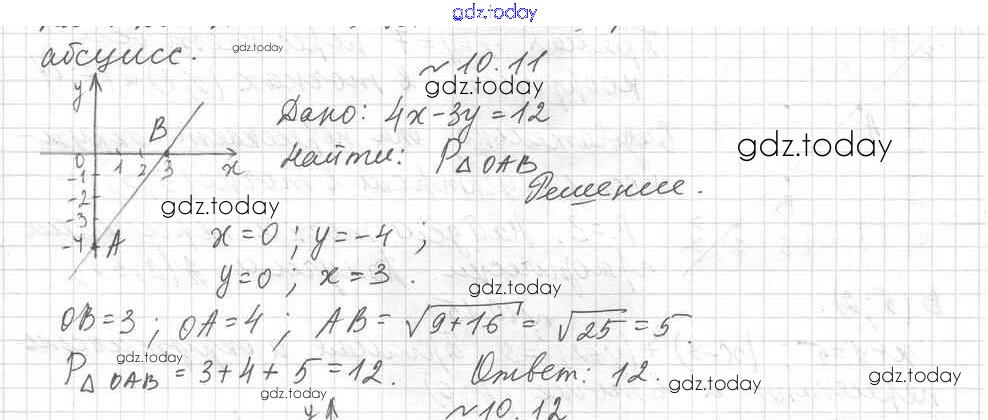 gdz.today
абсцисс.
gdz.today
№10.11
gdz.today
y
B
Дано: 4x-3y=12
gdz.today
0 1 2 3 x
Найти: P△OAB
Решение.
-1
-2
gdz.today
-3
-4 A
x=0; y=-4;
y=0; x=3.
gdz.today
OB=3; OA=4; AB=√9+16=√25=5.
gdz.today
P△OAB=3+4+5=12. Ответ: 12.
gdz.today
gdz.today
gdz.today
y
№10.12